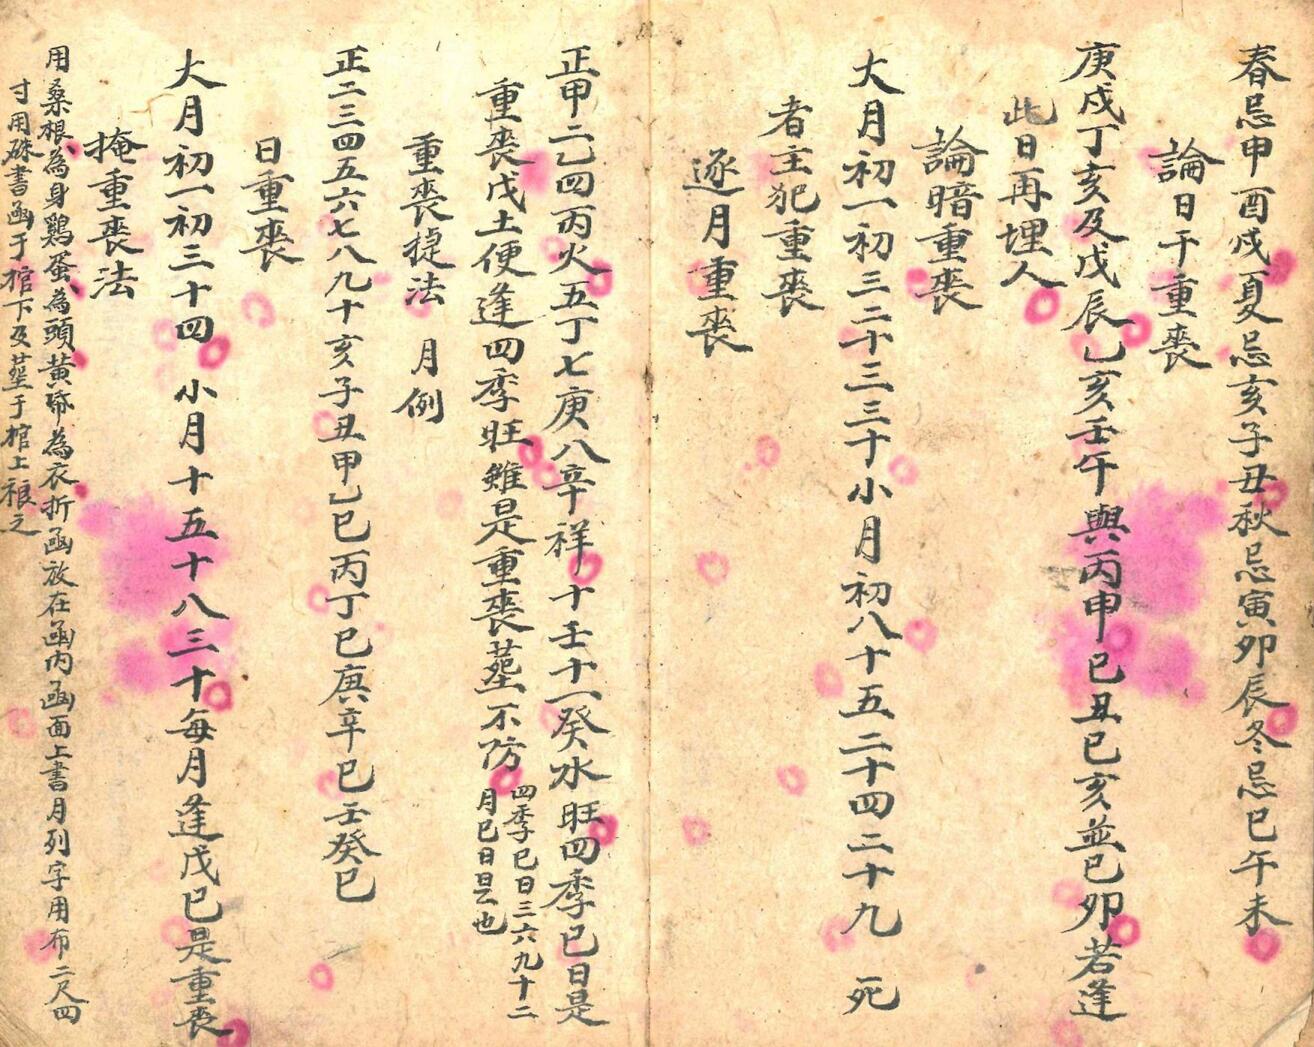 春忌申酉戌夏忌亥子丑秋忌寅卯辰冬忌巳午未
論日干重喪
庚戌丁亥及戊辰乙亥壬午與丙申已丑已亥並已卯若逢
此日再埋人
論暗重喪
大月初一初三二十三三十小月初八十五二十四二十九 死
者主犯重喪
逐月重喪
正甲二乙四丙火五丁七庚八辛祥十壬十一癸水旺四季已日是
重喪戊土便逢四季旺雖是重喪塟不防
四季已日三六九十二
月已日是也
重喪捷法 月例
正二三四五六七八九十亥子丑甲乙巳丙丁巳庚辛巳壬癸巳
日重喪
大月初一初三十四 小月十五十八三十每月逢戊巳是重喪
掩重喪法
用桑根為身鷄蛋為頭黄帋為衣折凾放在凾内凾面上書月列字用布二尺四
寸用硃書凾于棺下及塟于棺上